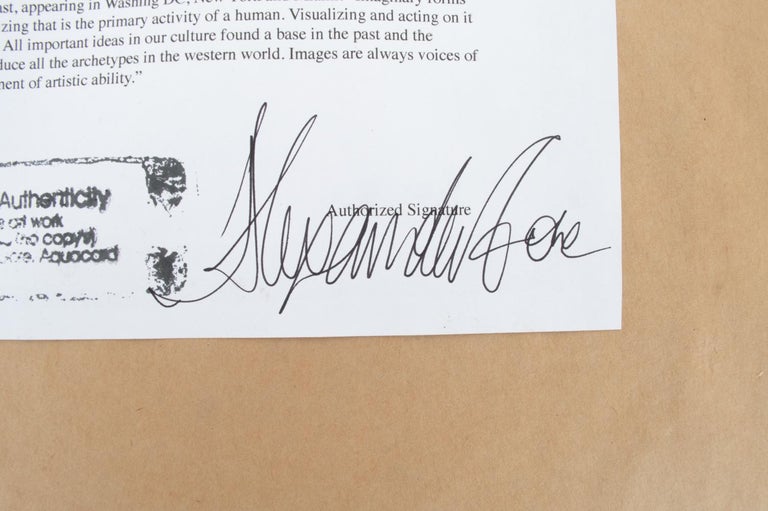 ast, appearing in Washing DC, New York and
zing that is the primary activity of a human. Visualizing and acting on it
All important ideas in our culture found a base in the past and the
duce all the archetypes in the western world. Images are always voices of
ent of artistic ability.”
Authenticity
art work
(no copy)
Aquacard
Authorized Signature
Alexander